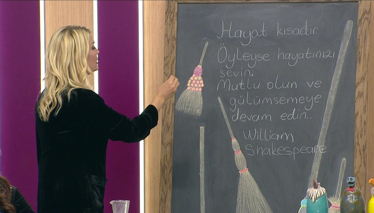 Hayat kısadır
Öyleyse hayatınızı
sevin.
Mutlu olun ve
gülümsemeye
devam edin..
William
Shakespeare